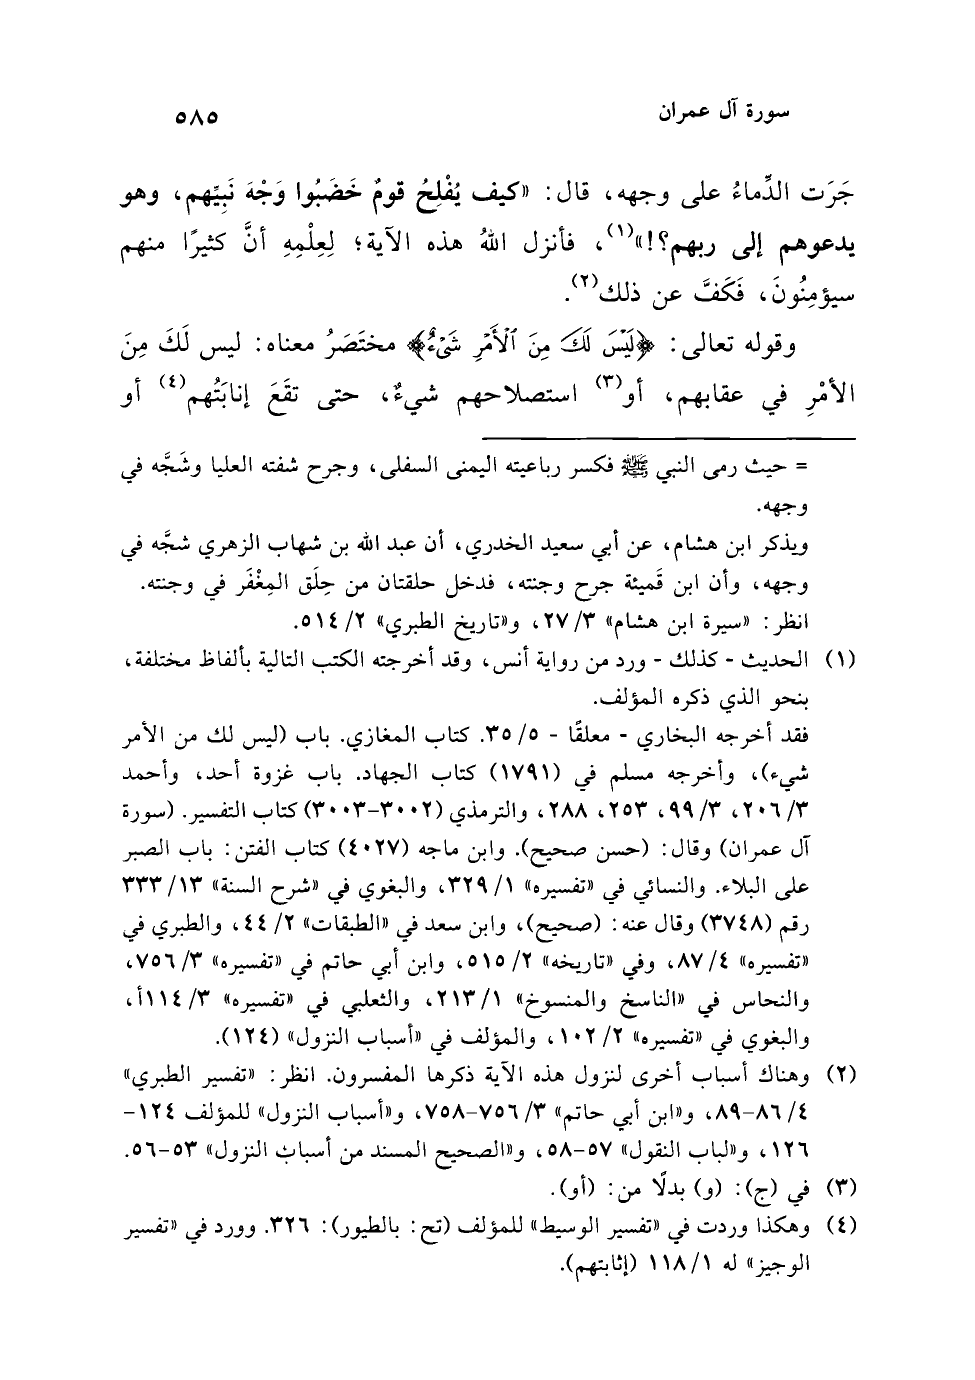 سورة آل عمران ٥٨٥
جَرَت الدِّماءُ على وجهه، قال: «كيف يُفْلِحُ قومٌ خَضَبُوا وَجْهَ نَبِيِّهم، وهو
يدعوهم إلى ربهم؟!»(١)، فأنزل اللهُ هذه الآية؛ لِعِلْمِهِ أنَّ كثيرًا منهم
سيؤمِنُونَ، فَكَفَّ عن ذلك(٢).
وقوله تعالى: ﴿لَيْسَ لَكَ مِنَ ٱلْأَمْرِ شَىْءٌ﴾ مختَصَرُ معناه: ليس لَكَ مِنَ
الأمْرِ في عقابهم، أو(٣) استصلاحهم شيءٌ، حتى تقَعَ إنابَتُهم(٤) أو
= حيث رمى النبي ﷺ فكسر رباعيته اليمنى السفلى، وجرح شفته العليا وشَجَّه في
وجهه.
ويذكر ابن هشام، عن أبي سعيد الخدري، أن عبد الله بن شهاب الزهري شجَّه في
وجهه، وأن ابن قَميئة جرح وجنته، فدخل حلقتان من حِلَق المِغْفَر في وجنته.
انظر: «سيرة ابن هشام» ٣/ ٢٧، و«تاريخ الطبري» ٢/ ٥١٤.
(١) الحديث - كذلك - ورد من رواية أنس، وقد أخرجته الكتب التالية بألفاظ مختلفة،
بنحو الذي ذكره المؤلف.
فقد أخرجه البخاري - معلقًا - ٥/ ٣٥. كتاب المغازي. باب (ليس لك من الأمر
شيء)، وأخرجه مسلم في (١٧٩١) كتاب الجهاد. باب غزوة أحد، وأحمد
٣/ ٢٠٦، ٣/ ٩٩، ٢٥٣، ٢٨٨، والترمذي (٣٠٠٢-٣٠٠٣) كتاب التفسير. (سورة
آل عمران) وقال: (حسن صحيح). وابن ماجه (٤٠٢٧) كتاب الفتن: باب الصبر
على البلاء. والنسائي في «تفسيره» ١/ ٣٢٩، والبغوي في «شرح السنة» ١٣/ ٣٣٣
رقم (٣٧٤٨) وقال عنه: (صحيح)، وابن سعد في «الطبقات» ٢/ ٤٤، والطبري في
«تفسيره» ٤/ ٨٧، وفي «تاريخه» ٢/ ٥١٥، وابن أبي حاتم في «تفسيره» ٣/ ٧٥٦،
والنحاس في «الناسخ والمنسوخ» ١/ ٢١٣، والثعلبي في «تفسيره» ٣/ ١١٤أ،
والبغوي في «تفسيره» ٢/ ١٠٢، والمؤلف في «أسباب النزول» (١٢٤).
(٢) وهناك أسباب أخرى لنزول هذه الآية ذكرها المفسرون. انظر: «تفسير الطبري»
٤/ ٨٦-٨٩، و«ابن أبي حاتم» ٣/ ٧٥٦-٧٥٨، و«أسباب النزول» للمؤلف ١٢٤-
١٢٦، و«لباب النقول» ٥٧-٥٨، و«الصحيح المسند من أسباب النزول» ٥٣-٥٦.
(٣) في (ج): (و) بدلًا من: (أو).
(٤) وهكذا وردت في «تفسير الوسيط» للمؤلف (تح: بالطيور): ٣٢٦. وورد في «تفسير
الوجيز» له ١/ ١١٨ (إثابتهم).